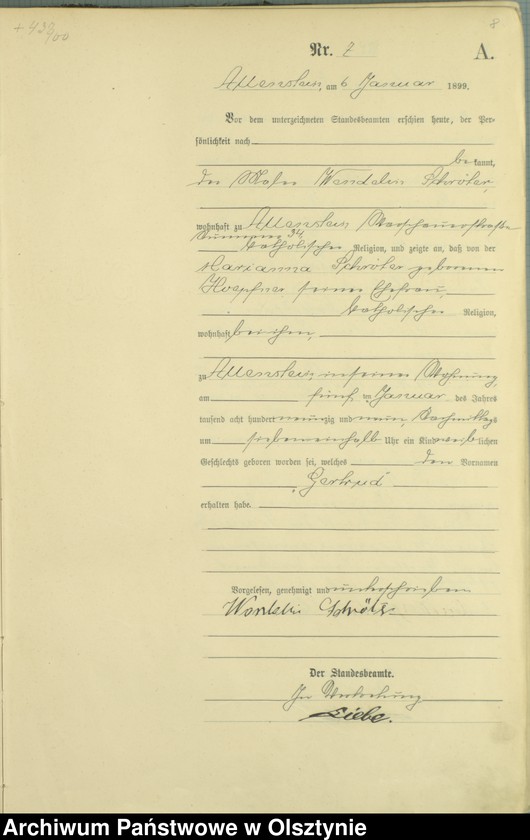 + 439/00
8
Nr. 7
A.
Allenstein, am 6 Januar 1899.
Vor dem unterzeichneten Standesbeamten erschien heute, der Per-
sönlichkeit nach
bekannt,
der Maler Wendelin Schröter,
wohnhaft zu Allenstein Warschauerstraße
Nummer 34
katholischer Religion, und zeigte an, daß von der
Marianna Schröter geborenen
Hoepfner seiner Ehefrau,
katholischer Religion,
wohnhaft bei ihm,
zu Allenstein in seiner Wohnung,
am fünf ten Januar des Jahres
tausend acht hundert neunzig und neun, Nachmittags
um siebeneinhalb Uhr ein Kind weiblichen
Geschlechts geboren worden sei, welches den Vornamen
"Gertrud"
erhalten habe.
Vorgelesen, genehmigt und unterschrieben
Wendelin Schröter
Der Standesbeamte.
In Vertretung
Liebe.
Archiwum Państwowe w Olsztynie